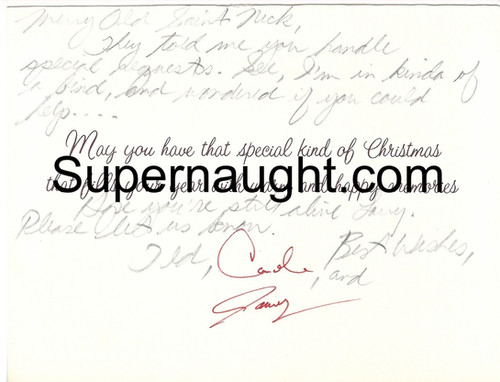 Merry Old Saint Nick,
They told me you handle
special requests. See, I'm in kinda of
a bind, and wondered if you could
help....
May you have that special kind of Christmas
Supernaught.com
that fills your year with warm and happy memories
Hope you're still alive
Please let us know.
Best Wishes,
Ted, Carole
and